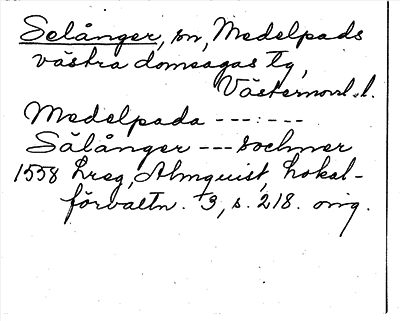 Selånger, sn, Medelpads
västra domsagas tg,
Västernorrl. l.
Medelpada ---:---
Sålånger --- sochner
1558 Lreg, Almquist, Lokal-
förvaltn. 3, s. 218. orig.